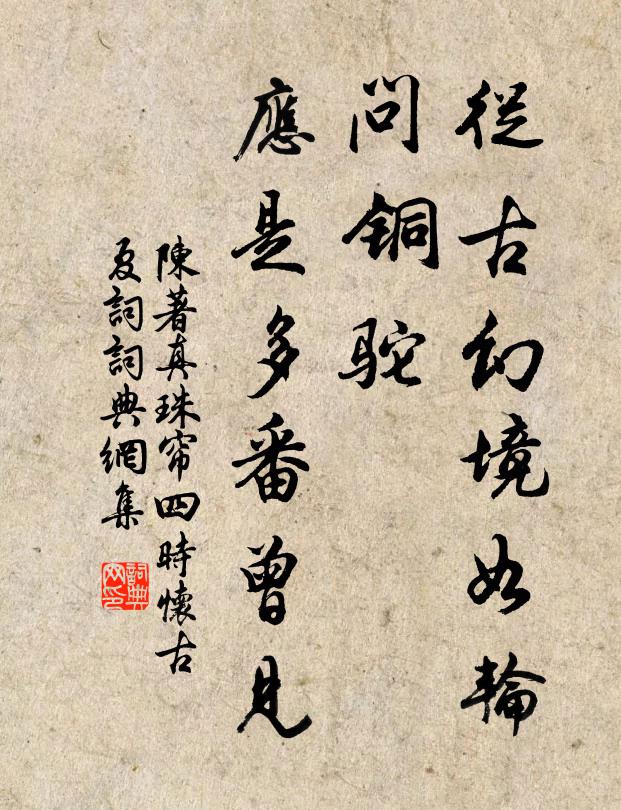 從古幻境如輪
問铜駝
應是多番曾見
陳著真珠帘四時懷古
夏詞詞典網集
詞典网印